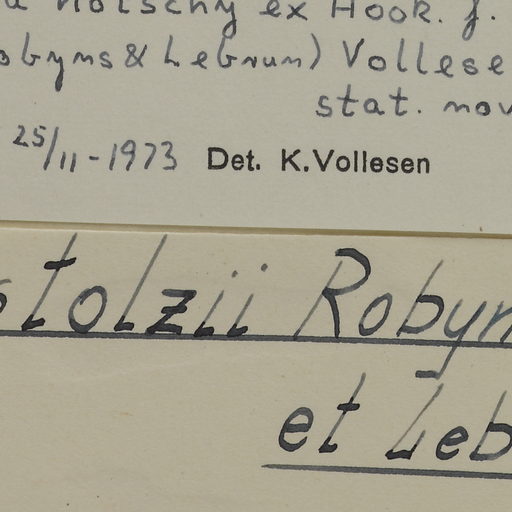 Kotschy ex Hook. f.
obyns & Lebrun) Vollese
stat. nov
25/11-1973 Det. K. Vollesen
stolzii Robyn
et Leb